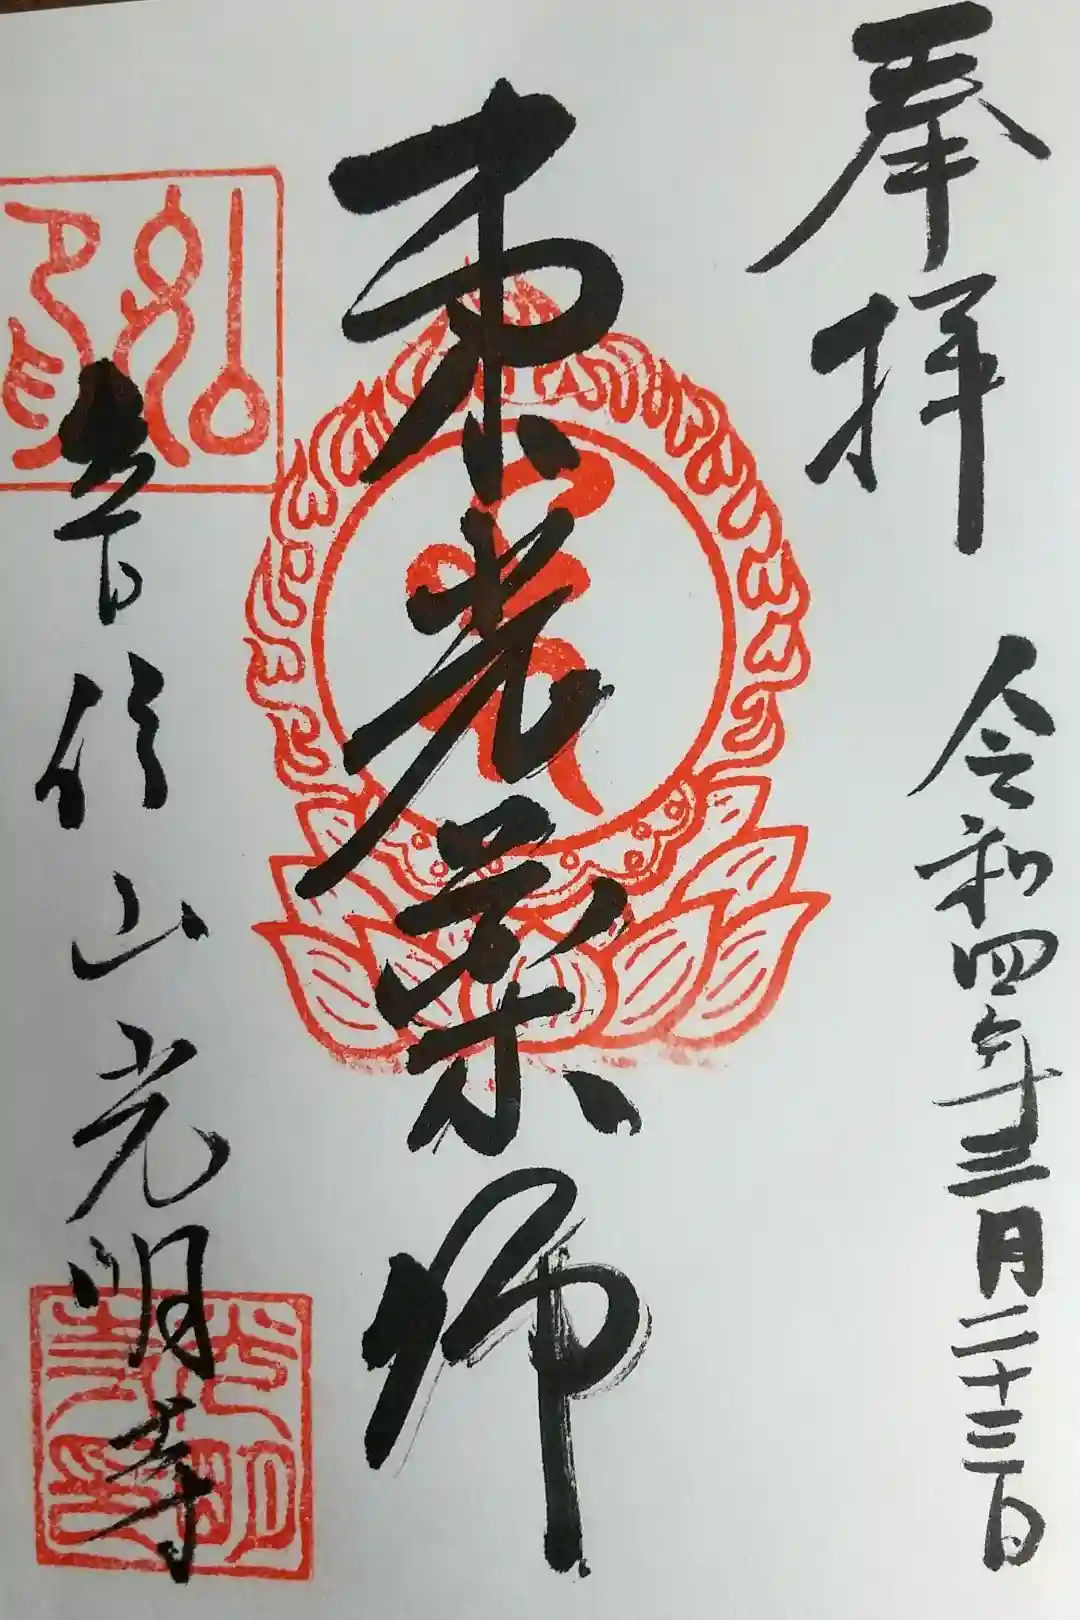 奉拝
令和四年三月二十三日
東光薬師
普信山光明寺